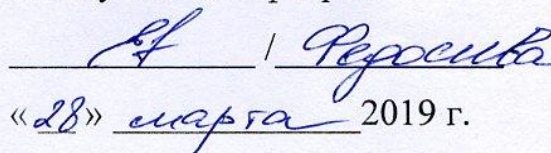 / Федосива
«28» марта 2019 г.